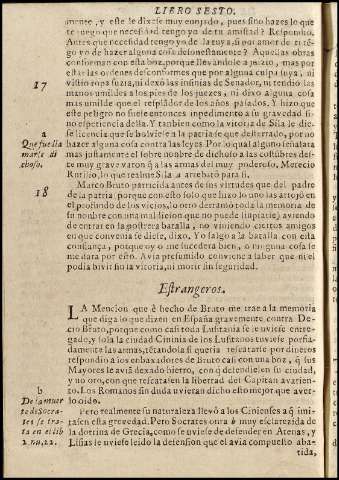 LIBRO SESTO.
mente, y este le dixese muy enojado, pues sino hazes lo que
te ruego que necesidad tengo yo de tu amistad? Respondio.
Antes que necesidad tengo yo de la tuya, si por amor de ti tẽ-
go yo de hazer alguna cosa desonestamente? Aquellas obras
conforman con esta boz, porque llevandole a juizio, mas por
estar las ordenes desconformes que por alguna culpa suya, ni
17
vistio ropa suzia, ni dexò las insinias de Senador, ni tendio las
manos umildes a los pies de los juezes, ni dixo alguna cosa
mas umilde que el resplãdor de los años pasados. Y hizo que
este peligro no fuese entonces impedimẽto a su gravedad si-
no esperiencia della. Y tambien como la vitoria de Sila le die-
a
Que fue lla
marse di
choso.
se licencia que se bolviese a la patria se que desterrado, por no
hazer alguna cosa contra las leyes. Por lo qual alguno señalara
mas justamente el sobre nombre de dichoso a las costũbres des-
te muy grave varon q̃ a las armas del muy poderoso. Merecio
Rutilio, lo que realmẽte Sila a arrebatò para si.
18
Marco Bruto parricida antes de sus virtudes que del padre
de la patria, porque con esto solo que hizo lo uno las arrojò en
el profundo de los vicios, lo otro derramò toda la memoria de
su nombre con una maldicion que no puede limpiarse) aviendo
de entrar en la postrera batalla, no viniendo ciertos amigos
en que convenia se diese, dixo. Yo salgo a la batalla con esta
confiança, porque oy o me sucederà bien, o ninguna cosa se
me darà por esto. Avia presumido conviene a saber que ni el
podia bivir sin la vitoria, ni morir sin seguridad.
Estrangeros.
LA Mencion que è hecho de Bruto me trae a la memoria
que diga lo que dizen en España gravemente contra De-
cio Bruto, porque como casi toda Lusitania se le uviese entre-
gado, y sola la ciudad Cininia de los Lusitanos tuviese porfia-
damente las armas, tẽtandola si queria rescatarse por dineros
respondio a los enbaxadores de Bruto casi con una boz, q̃ sus
Mayores le aviã dexado hierro, con q̃ defendiesen su ciudad,
y no oro, con que rescatasen la libertad del Capitan avarien-
b
De la muer
te de Socra-
tes se tra-
ta en el lib
to. Los Romanos sin duda uvieran dicho esto mejor que aver-
lo oido.
Pero realmente su naturaleza llevò a los Cinienses a q̃ imi-
tasen esta gravedad. Pero Socrates onrra b muy esclarezida de
la dotrina de Grecia, como se uviese de defender en Atenas, y
Lisias le uviese leido la defension que el avia compuesto aba-
tida,